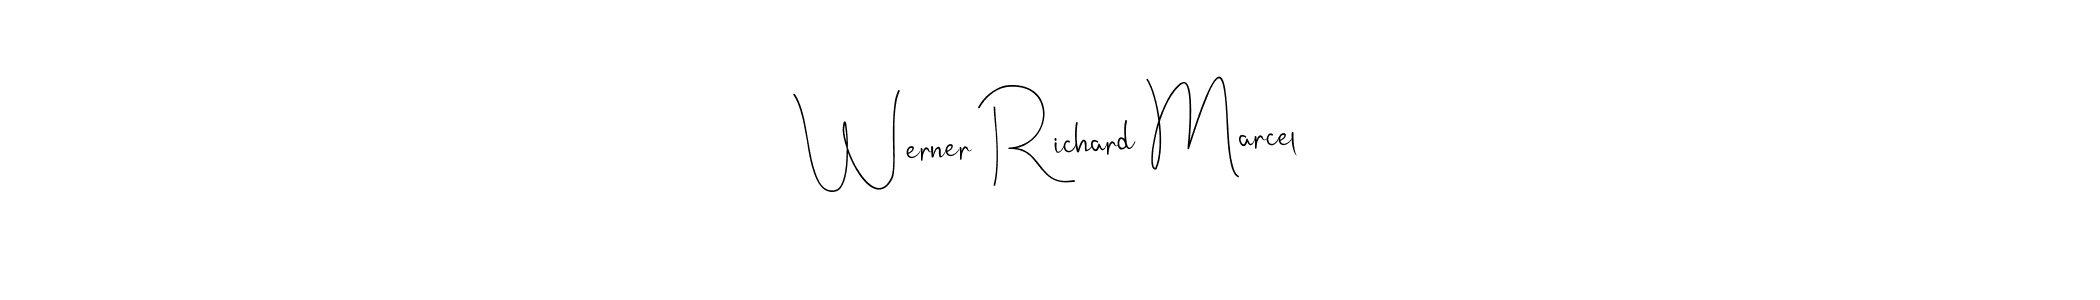 Werner Richard Marcel